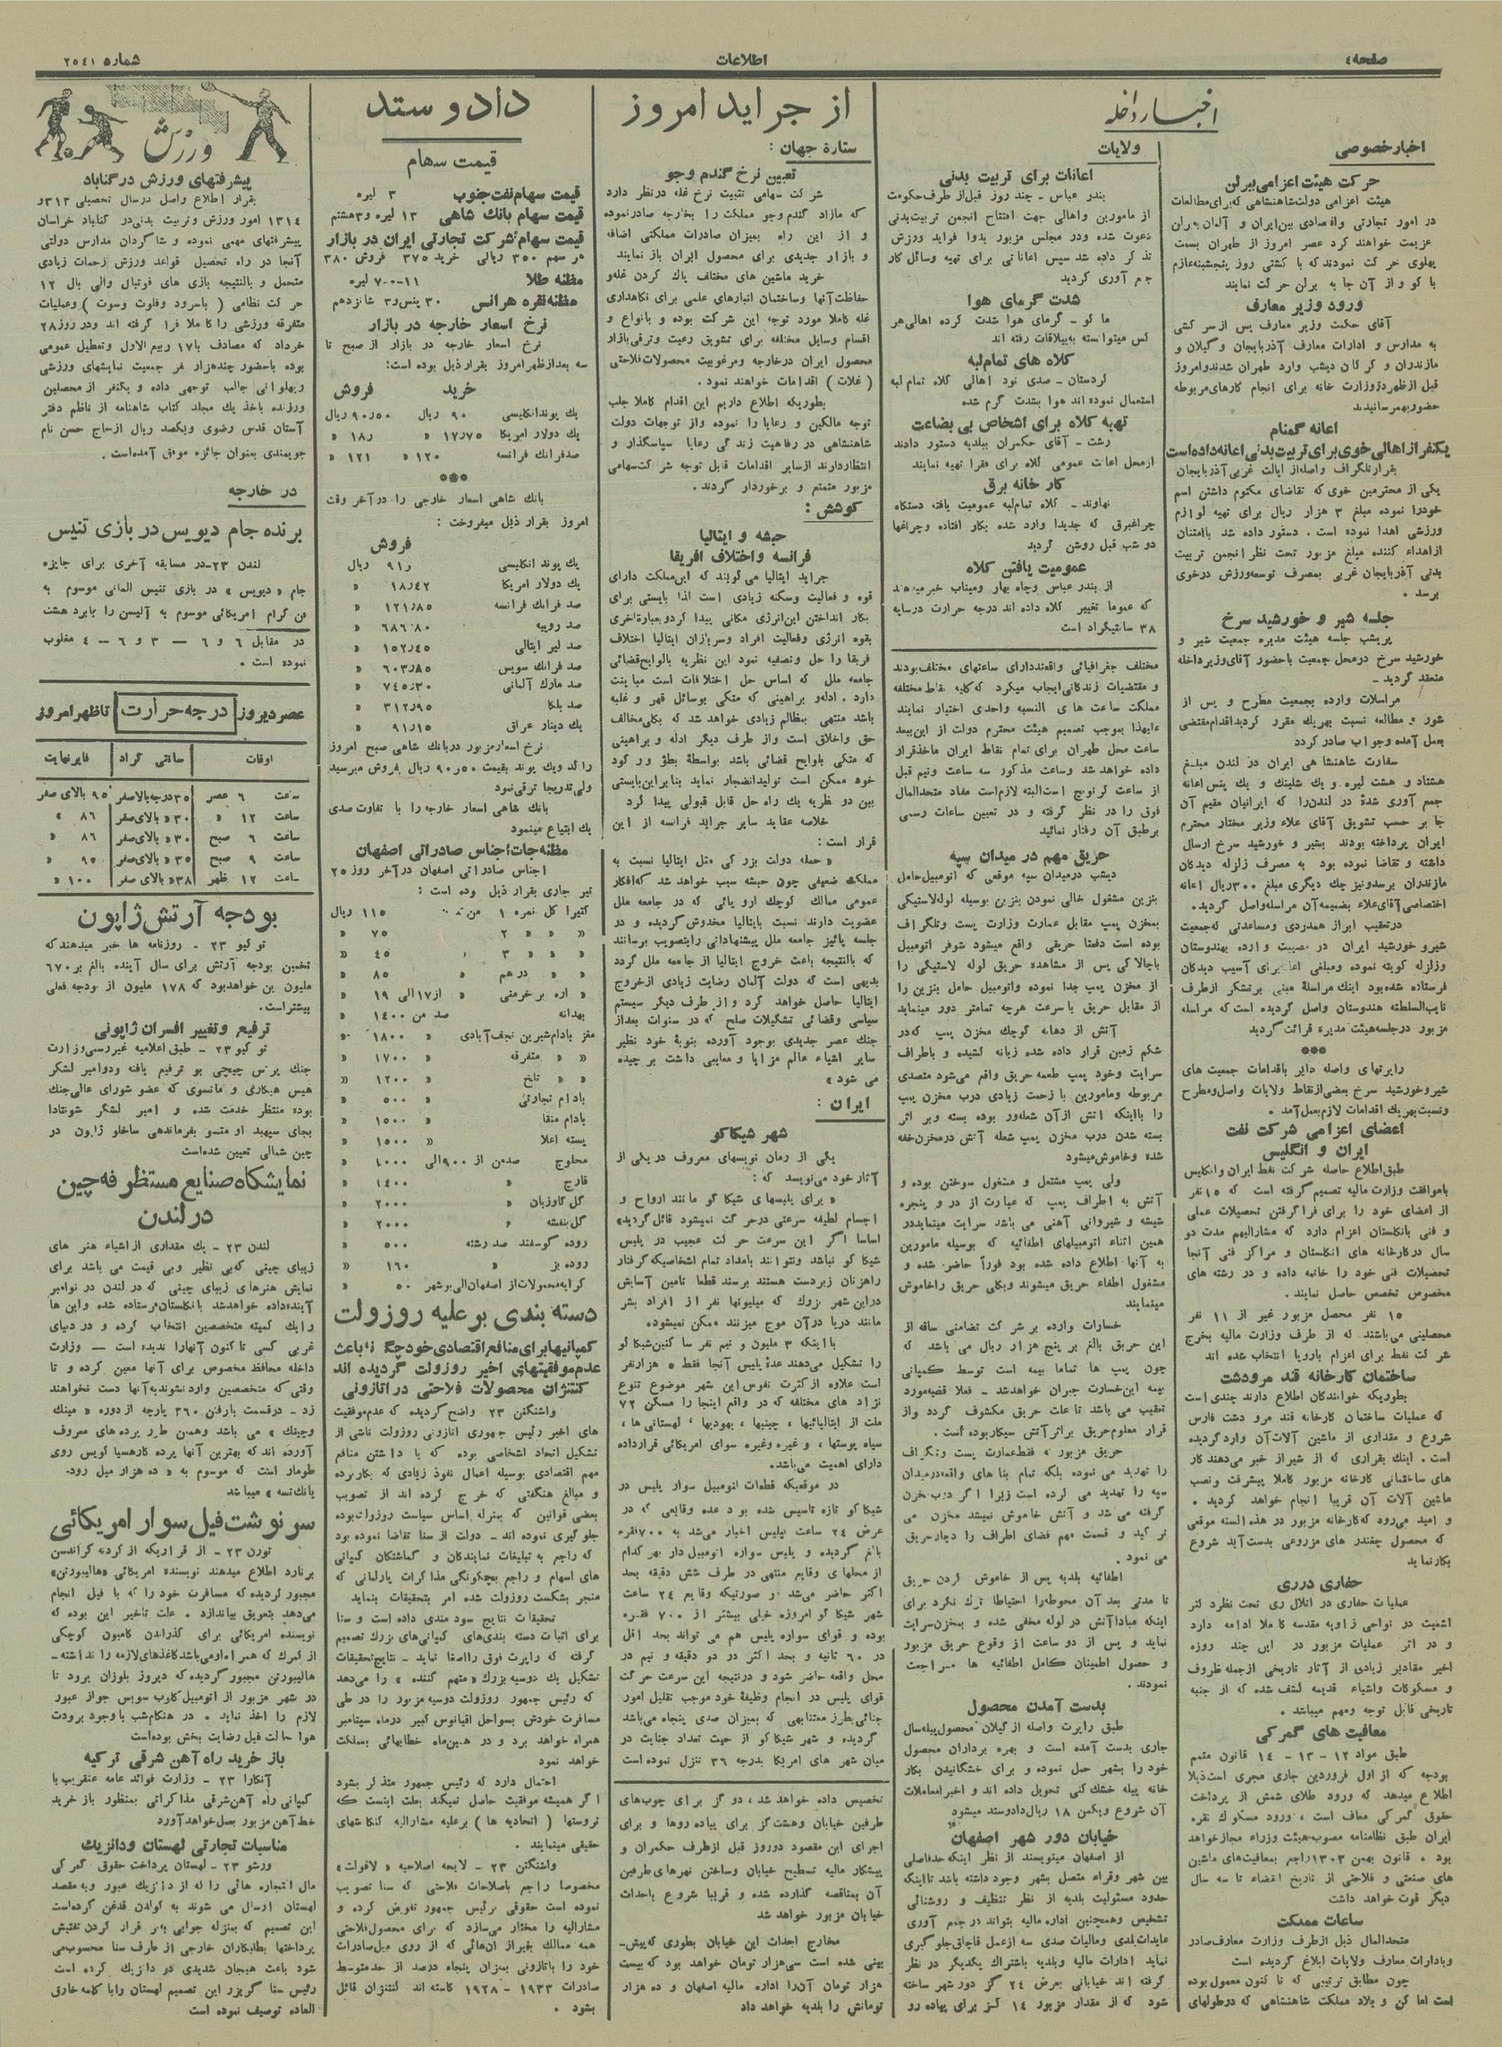 صفحه٤
اطلاعات
شماره ٢٥٤١
اخبار داخله
اخبار خصوصی
حرکت هیئت اعزامی ببرلن
هیئت اعزامی دولت شاهنشاهی که برای مطالعات
در امور تجارتی واقتصادی بین ایران و آلمان بایران
عزیمت خواهند کرد عصر امروز از طهران بسمت
پهلوی حرکت نمودند که با کشتی روز پنجشنبه عازم
باکو و از آن جا به برلن حرکت نمایند
ورود وزیر معارف
آقای حکمت وزیر معارف پس از سرکشی
به مدارس و ادارات معارف آذربایجان و گیلان و
مازندران و گرگان دیشب وارد طهران شدند و امروز
قبل از ظهر در وزارت خانه برای انجام کارهای مربوطه
حضور بهمرسانیدند
اعانه گمنام
یکنفر از اهالی خوی برای تربیت بدنی اعانه داده است
بقرار تلگراف واصله از ایالت غربی آذربایجان
یکی از محترمین خوی که تقاضای مکتوم داشتن اسم
خود را نموده مبلغ ٣ هزار ریال برای تهیه لوازم
ورزشی اهدا نموده است . دستور داده شد باامتنان
از اهداء کننده مبلغ مزبور تحت نظر انجمن تربیت
بدنی آذربایجان غربی بمصرف توسعه ورزش در خوی
برسد .
جلسه شیر و خورشید سرخ
پریشب جلسه هیئت مدیره جمعیت شیر و
خورشید سرخ در محل جمعیت با حضور آقای وزیر داخله
منعقد گردید -
مراسلات وارده بجمعیت مطرح و پس از
شور و مطالعه نسبت بهریک مقرر گردید اقدام مقتضی
بعمل آمده و جواب صادر گردد
سفارت شاهنشاهی ایران در لندن مبلغ
هشتاد و هشت لیره و یک شلینک و یک پنس اعانه
جمع آوری شده در لندن را که ایرانیان مقیم آن
جا بر حسب تشویق آقای علاء وزیر مختار محترم
ایران پرداخته بودند بشیر و خورشید سرخ ارسال
داشته و تقاضا نموده بود به مصرف زلزله دیدگان
مازندران برسد و نیز چک دیگری مبلغ ٣٠٠ ریال اعانه
اختصاصی آقای علاء بضمیمه آن مراسله واصل گردید.
در تعقیب ابراز همدردی و مساعدتی که جمعیت
شیر و خورشید ایران در مصیبت وارده بهندوستان
وزلزله کویته نموده ومبلغی اعانه برای آسیب دیدگان
فرستاده شده بود اینک مراسلهٔ مبنی بر تشکر از طرف
نایب السلطنه هندوستان واصل گردیده است که مراسله
مزبور در جلسه هیئت مدیره قرائت گردید
***
راپرتهای واصله دایر باقدامات جمعیت های
شیر و خورشید سرخ بعضی از نقاط ولایات واصل و مطرح
ونسبت بهریک اقدامات لازم بعمل آمد .
اعضای اعزامی شرکت نفت
ایران و انگلیس
طبق اطلاع حاصله شرکت نفط ایران و انگلیس
باموافقت وزارت مالیه تصمیم گرفته است که ١٥ نفر
از اعضای خود را برای فرا گرفتن تحصیلات عملی
و فنی بانگلستان اعزام دارد که مشارالیهم مدت دو
سال در کارخانه های انگلستان و مراکز فنی آنجا
تحصیلات فنی خود را خاتمه داده و در رشته های
مخصوص تخصص حاصل نمایند .
١٥ نفر محصل مزبور غیر از ١١ نفر
محصلینی می‌باشند که از طرف وزارت مالیه بخرج
شرکت نفط برای اعزام باروپا انتخاب شده اند
ساختمان کارخانه قند مرودشت
بطوریکه خوانندگان اطلاع دارند چندی است
که عملیات ساختمان کارخانه قند مرو دشت فارس
شروع و مقداری از ماشین آلات آن وارد گردیده
است . اینک بقراری که از شیراز خبر میدهند کار
های ساختمانی کارخانه مزبور کاملا پیشرفت ونصب
ماشین آلات آن قریبا انجام خواهد گردید .
و امید می‌رود که کارخانه مزبور در هذه السنه موقعی
که محصول چغندر های مزروعی بدست آید شروع
بکار نماید
حفاری در ری
عملیات حفاری در اتلال ری تحت نظر دکتر
اشمیت در نواحی زاویه مقدسه کاملا ادامه دارد
و در اثر عملیات مزبور در این چند روزه
اخیر مقادیر زیادی از آثار تاریخی از جمله ظروف
و مسکوکات واشیاء قدیمه کشف شده که از جنبه
تاریخی قابل توجه و مهم میباشد .
معافیت های گمرکی
طبق مواد ١٢ - ١٣ - ١٤ قانون متمم
بودجه که از اول فروردین جاری مجری است ذیلا
اطلاع میدهد که ورود طلای شمش از پرداخت
حقوق گمرکی معاف است ، ورود مسکوک نقره
ایران طبق نظامنامه مصوب هیئت وزراء مجاز خواهد
بود . قانون بهمن ١٣٠٣ راجع بمعافیت های ماشین
های صنعتی و فلاحتی از تاریخ انقضاء تا سه سال
دیگر قوت خواهد داشت
ساعات مملکت
متحدالمال ذیل از طرف وزارت معارف صادر
وبادارات معارف ولایات ابلاغ گردیده است
چون مطابق ترتیبی که تا کنون معمول بوده
است اماکن و بلاد مملکت شاهنشاهی که در طولهای
ولایات
اعانات برای تربیت بدنی
بندر عباس - چند روز قبل از طرف حکومت
از مامورین واهالی جهت افتتاح انجمن تربیت بدنی
دعوت شده ودر مجلس مزبور بدوا فواید ورزش
تذکر داده شد سپس اعاناتی برای تهیه وسائل کار
جمع آوری گردید
شدت گرمای هوا
ماکو - گرمای هوا شدت کرده اهالی هر
کس میتوانسته به ییلاقات رفته اند
کلاه های تمام لبه
کردستان - صدی نود اهالی کلاه تمام لبه
استعمال نموده اند هوا بشدت گرم شده
تهیه کلاه برای اشخاص بی بضاعت
رشت - آقای حکمران ببلدیه دستور دادند
از محل اعانات عمومی کلاه برای فقرا تهیه نمایند
کارخانه برق
نهاوند - کلاه تمام لبه عمومیت یافته دستگاه
چراغ برق که جدیدا وارد شده بکار افتاده وچراغها
دو شب قبل روشن گردید
عمومیت یافتن کلاه
از بندر عباس وچاه بهار ومیناب خبر میدهند
که عموما تغییر کلاه داده اند درجه حرارت در سایه
٣٨ سانتیگراد است
مختلف جغرافیائی واقعند دارای ساعتهای مختلف بودند
و مقتضیات زندگانی ایجاب میکرد که کلیه نقاط مختلفه
مملکت ساعت های بالنسبه واحدی اختیار نمایند
علیهذا بموجب تصمیم هیئت محترم دولت از این ببعد
ساعت محل طهران برای تمام نقاط ایران ماخذ قرار
داده خواهد شد وساعت مذکور سه ساعت ونیم قبل
از ساعت گرنویچ است البته لازم است مفاد متحدالمال
فوق را در نظر گرفته و در تعیین ساعات رسمی
برطبق آن رفتار نمائید
حریق مهم در میدان سپه
دیشب در میدان سپه موقعی که اتومبیل حامل
بنزین مشغول خالی نمودن بنزین بوسیله لوله لاستیکی
بمخزن پمپ مقابل عمارت وزارت پست وتلگراف
بوده است دفعتا حریقی واقع میشود شوفر اتومبیل
باچالاکی پس از مشاهده حریق لوله لاستیکی را
از مخزن پمپ جدا نموده واتومبیل حامل بنزین را
از مقابل حریق با سرعت هرچه تمامتر دور مینماید
آتش از دهانه کوچک مخزن پمپ که در
شکم زمین قرار داده شده زبانه کشیده و باطراف
سرایت وخود پمپ طعمه حریق واقع می‌شود متصدی
مربوطه ومامورین با زحمت زیادی درب مخزن پمپ
را با اینکه آتش از آن شعله ور بوده بسته وبر اثر
بسته شدن درب مخزن پمپ شعله آتش در مخزن خفه
شده وخاموش میشود
ولی پمپ مشتعل و مشغول سوختن بوده و
آتش به اطراف پمپ که عبارت از در و پنجره
شیشه و شیروانی آهنی می باشد سرایت مینماید در
همین اثناء اتومبیلهای اطفائیه که بوسیله مامورین
به آنها اطلاع داده شده بود فوراً حاضر شده و
مشغول اطفاء حریق میشوند وبکلی حریق را خاموش
مینمایند
خسارات وارده بر شرکت تضامنی ساقه از
این حریق بالغ بر پنج هزار ریال می باشد که
چون پمپ ها تماما بیمه است توسط کمپانی
بیمه این خسارت جبران خواهد شد - فعلا قضیه مورد
تعقیب می باشد تا علت حریق مکشوف گردد واز
قرار معلوم حریق براثر آتش سیگار بوده است .
حریق مزبور نه فقط عمارت پست وتلگراف
را تهدید می نموده بلکه تمام بنا های واقعه در میدان
سپه را تهدید می کرده است زیرا اگر درب مخزن
گرفته می شد و آتش خاموش نمیشد مخزن می
ترکید و قسمت مهم فضای اطراف را دچار حریق
می نمود .
اطفائیه بلدیه پس از خاموش کردن حریق
تا مدتی بعد آن محوطه را احتیاطا ترک نکرد برای
اینکه مبادا آتش در لوله مخفی شده و بمخزن سرایت
نماید و پس از دو ساعت از وقوع حریق مزبور
و حصول اطمینان کامل اطفائیه ها مراجعت
نمودند .
بدست آمدن محصول
طبق راپرت واصله از گیلان محصول پیله سال
جاری بدست آمده است و بهره برداران محصول
خود را بشهر حمل نموده و برای خشگانیدن بکار
خانه پیله خشک کنی تحویل داده اند و اخیرا معاملات
آن شروع ویکمن ١٨ ریال داد وستد میشود
خیابان دور شهر اصفهان
از اصفهان مینویسند از نظر اینکه حد فاصلی
بین شهر وقراء متصل بشهر وجود داشته باشد تا اینکه
حدود مسئولیت بلدیه از نظر تنظیف و روشنائی
تشخیص وهمچنین اداره مالیه بتواند در جمع آوری
عایدات بلدی ومالیات صدی سه از عمل قاچاق جلوگیری
نماید ادارات مالیه وبلدیه باشتراک یکدیگر در نظر
گرفته اند خیابانی بعرض ٢٤ گز دور شهر ساخته
شود که از مقدار مزبور ١٤ گز برای پیاده رو
از جراید امروز
ستاره جهان :
تعیین نرخ گندم وجو
شرکت سهامی تثبیت نرخ غله در نظر دارد
که مازاد گندم وجو مملکت را بخارجه صادر نموده
و از این راه بمیزان صادرات مملکتی اضافه
و بازار جدیدی برای محصول ایران باز نمایند
خرید ماشین های مختلف پاک کردن غله و
حفاظت آنها وساختمان انبارهای علمی برای نگاهداری
غله کاملا مورد توجه این شرکت بوده و بانواع و
اقسام وسایل مختلفه برای تشویق رعیت وترقی بازار
محصول ایران در خارجه ومرغوبیت محصولات فلاحتی
( غلات ) اقدامات خواهند نمود .
بطوریکه اطلاع داریم این اقدام کاملا جلب
توجه مالکین و رعایا را نموده واز توجهات دولت
شاهنشاهی در رفاهیت زندگی رعایا سپاسگذار و
انتظار دارند از سایر اقدامات قابل توجه شرکت سهامی
مزبور متمتع و برخوردار گردند .
کوشش :
حبشه و ایتالیا
فرانسه و اختلاف افریقا
جراید ایتالیا می گویند که این مملکت دارای
قوه و فعالیت وسکنه زیادی است لذا بایستی برای
بکار انداختن این انرژی مکانی پیدا کرد و بعبارة اخری
بقوه انرژی وفعالیت افراد وسربازان ایتالیا اختلاف
فریقا را حل وتصفیه نمود این نظریه بالوایح قضائی
جامعه ملل که اساس حل اختلافات است مباینت
دارد . ادله و براهینی که متکی بوسائل قهر و غلبه
باشد منتهی بمظالم زیادی خواهد شد که بکلی مخالف
حق واخلاق است واز طرف دیگر ادله و براهینی
که متکی بلوایح قضائی باشد بواسطهٔ بطؤ ورکود
خود ممکن است تولید انضجار نماید بنابراین بایستی
بین دو نظریه یک راه حل قابل قبولی پیدا کرد
خلاصه عقاید سایر جراید فرانسه از این
قرار است :
« حمله دولت بزرگی مثل ایتالیا نسبت به
مملکت ضعیفی چون حبشه سبب خواهد شد که افکار
عمومی ممالک کوچک اروپائی که در جامعه ملل
عضویت دارند نسبت بایتالیا مخدوش گردیده و در
جلسه پائیز جامعه ملل پیشنهاداتی را بتصویب برسانند
که بالنتیجه باعث خروج ایتالیا از جامعه ملل گردد
بدیهی است که دولت آلمان رضایت زیادی از خروج
ایتالیا حاصل خواهد کرد و از طرف دیگر سیستم
سیاسی وقضائی تشکیلات صلح که در سنوات بعد از
جنگ عصر جدیدی بوجود آورده بنوبهٔ خود نظیر
سایر اشیاء عالم مزایا و معایبی داشت بر چیده
می شود »
ایران :
شهر شیکاگو
یکی از رمان نویسهای معروف در یکی از
آثار خود می‌نویسد که :
« برای پلیسهای شیکاگو مانند ارواح و
اجسام لطیفه سرعتی در حرکت نمیشود قائل گردید»
اساسا اگر این سرعت حرکت عجیب در پلیس
شیکاگو نباشد ونتوانند بامداد تمام اشخاصیکه گرفتار
راهزنان زبردست هستند برسند قطعا تامین آسایش
در این شهر بزرگ که میلیونها نفر از افراد بشر
مانند دریا در آن موج میزنند ممکن نمیشود.
با اینکه ٣ ملیون و نیم نفر ساکنین شیکاگو
را تشکیل می‌دهند عدهٔ پلیس آنجا فقط ٥ هزار نفر
است علاوه از کثرت نفوس این شهر موضوع تنوع
نژاد های مختلفه که در واقع اینجا را مسکن ٧٢
ملت از ایتالیائیها ، چینیها ، یهودیها ، لهستانی ها ،
سیاه پوستها ، و غیره و غیره سوای امریکائی قرار داده
دارای اهمیت می‌باشد.
در موقعیکه قطعات اتومبیل سوار پلیس در
شیکاگو تازه تاسیس شده بود عده وقایعی که در
عرض ٢٤ ساعت بپلیس اخبار می‌شد به ٧٠٠ فقره
بالغ گردیده و پلیس سواره اتومبیل دار بهر کدام
از محلهای وقایع منتهی در ظرف شش دقیقه بعد
اکثر حاضر می‌شد در صورتیکه وقایع ٢٤ ساعت
شهر شیکاگو امروزه خیلی بیشتر از ٧٠٠ فقره
بوده و قوای سواره پلیس هم می تواند بحد اقل
در ٦٠ ثانیه و بحد اکثر در دو دقیقه و نیم در
محل واقعه حاضر شود و درنتیجه این سرعت حرکت
قوای پلیس در انجام وظیفهٔ خود موجب تقلیل امور
جنائی بطرز معتنابهی که بمیزان صدی پنجاه می‌باشد
گردیده و شهر شیکاگو از حیث تعداد جنایت در
میان شهر های امریکا بدرجه ٣٦ تنزل نموده است
تخصیص داده خواهد شد ، دو گز برای چوب های
طرفین خیابان وهشت گز برای پیاده روها و برای
اجرای این مقصود دوروز قبل از طرف حکمران و
پیشکار مالیه تسطیح خیابان وساختن نهرهای طرفین
آن بمناقصه گذارده شده و قریبا شروع باحداث
خیابان مزبور خواهد شد
مخارج احداث این خیابان بطوری که پیش-
بینی شده است سی هزار تومان خواهد بود که بیست
هزار تومان آن را اداره مالیه اصفهان و ده هزار
تومانش را بلدیه خواهد داد
داد و ستد
قیمت سهام
قیمت سهام نفت جنوب ٣ لیره
قیمت سهام بانک شاهی ١٣ لیره و٣هشتم
قیمت سهام شرکت تجارتی ایران در بازار
هر سهم ٣٥٠ ریالی خرید ٣٧٥ فروش ٣٨٠
مظنه طلا ١١-٧٠٠ لیره
مظنه نقره هر انس ٣٠ پنس و٣ شانزدهم
نرخ اسعار خارجه در بازار
نرخ اسعار خارجه در بازار از صبح تا
سه بعد از ظهر امروز بقرار ذیل بوده است:
خرید فروش
یک پوند انگلیسی ٩٠ ریال ٩٠٫٥٠ ریال
یک دولار امریکا ١٧٫٧٥ « ١٨٫ «
صد فرانک فرانسه ١٢٠ « ١٢١ «
***
بانک شاهی اسعار خارجی را در آخر وقت
امروز بقرار ذیل میفروخت :
فروش
یک پوند انگلیسی ٩١٫ ریال
یک دولار امریکا ١٨٫٤٢ «
صد فرانک فرانسه ١٢١٫٨٥ «
صد روپیه ٦٨٦٫٨٠ «
صد لیر ایتالی ١٥٢٫٤٥ «
صد فرانک سویس ٦٠٣٫٨٥ «
صد مارک آلمانی ٧٤٥٫٣٠ «
صد بلگا ٣١٢٫٩٥ «
یک دینار عراق ٩١٫١٥ «
نرخ اسعار مزبور در بانک شاهی صبح امروز
زائد ویک پوند بقیمت ٩٠٫٥٠ ریال بفروش میرسید
ولی تدریجا ترقی نمود
بانک شاهی اسعار خارجه را با تفاوت صدی
یک ابتیاع مینمود
مظنه جات اجناس صادراتی اصفهان
اجناس صادراتی اصفهان در آخر روز ٢٥
تیر جاری بقرار ذیل بوده است :
کتیرا گل نمره ١ من ١١٥ ریال
« « « ٢ ٧٥ «
« « « ٣ ٤٥ «
« « درهم « ٨٥ «
« اره بر خرمنی « از ١٧ الی ١٩ «
بهدانه صد من ١٤٠٠ «
مغز بادام شیرین نجف آبادی « ١٨٠٠ «
« « متفرقه « ١٧٠٠ «
« « تلخ « ١٢٠٠ «
بادام تجارتی « ٥٠٠ «
بادام منقا « ١٥٠٠ «
پسته اعلا « ١٥٠٠ «
محلوج صد من از ٩٠٠ الی ١٠٠٠ «
قارچ « ١٤٠٠ «
گل گاوزبان « ٢٠٠٠ «
گل بنفشه « ٢٠٠٠ «
روده گوسفند صد رشته ٥٠٠ «
روده بز « ١٦٠ «
کرایه محمولات از اصفهان الی بوشهر ٥٠ «
دسته بندی بر علیه روزولت
کمپانیها برای منافع اقتصادی خود چگونه باعث
عدم موفقیتهای اخیر روزولت گردیده اند
کنتژان محصولات فلاحتی در اتازونی
واشنگتن ٢٣ واضح گردیده که عدم موفقیت
های اخیر رئیس جمهوری اتازونی روزولت ناشی از
تشکیل اتحاد اشخاصی بوده که با داشتن منافع
مهم اقتصادی بوسیله اعمال نفوذ زیادی که بکار برده
و مبالغ هنگفتی که خرج کرده اند از تصویب
بعضی قوانین که بمنزله اساس سیاست روزولت بوده
جلوگیری نموده اند - دولت از سنا تقاضا نموده بود
که راجع به تبلیغات نمایندگان و گماشتگان کمپانی
های اسهام و راجع بچگونگی مذاکرات پارلمانی که
منجر بشکست روزولت شده امر بتحقیقات بنماید
تحقیقات نتایج سود مندی داده است و سنا
برای اثبات دسته بندی های کمپانی‌های بزرک تصمیم
گرفته که راپرت فوق را اصغا نماید - نتایج تحقیقات
تشکیل یک دوسیه بزرک «متهم کننده » را می‌دهد
که رئیس جمهور روزولت دوسیه مزبور را در طی
مسافرت خودش بسواحل اقیانوس کبیر در ماه سپتامبر
همراه خواهد برد و در همین ماه خطابهائی بمملکت
خواهد نمود
احتمال دارد که رئیس جمهور متذکر بشود
اگر همیشه موفقیت حاصل نمیکند بعلت اینست که
تروستها ( اتحادیه ها ) برعلیه مشارالیه کنکاشهای
حقیقی مینمایند .
واشنگتن ٢٣ - لایحه اصلاحیه « لافولت »
مخصوصا راجع باصلاحات فلاحتی که سنا تصویب
نموده است حقوقی برئیس جمهور تفویض کرده و
مشارالیه را مختار می‌سازد که برای محصول فلاحتی
همه ممالک بغیر از آن هائی که از روی میل صادرات
خود را باتازونی بمیزان پنجاه درصد از حد متوسط
صادرات ١٩٣٣ - ١٩٢٨ کاسته اند کنتنژان قائل
بشود .
ورزش
پیشرفتهای ورزش در گناباد
بقرار اطلاع واصل در سال تحصیلی ٣١٣ و
١٣١٤ امور ورزش وتربیت بدنی در گناباد خراسان
پیشرفتهای مهمی نموده و شاگردان مدارس دولتی
آنجا در راه تحصیل قواعد ورزش زحمات زیادی
متحمل و بالنتیجه بازی های فوتبال والی بال ١٢
حرکت نظامی ( باسرود وفلوت وسوت ) وعملیات
متفرقه ورزشی را کاملا فرا گرفته اند ودر روز ٢٨
خرداد که مصادف با١٧ ربیع الاول وتعطیل عمومی
بوده باحضور چند هزار نفر جمعیت نمایشهای ورزشی
وپهلوانی جالب توجهی داده و یکنفر از محصلین
ورزنده باخذ یک مجلد کتاب شاهنامه از ناظم دفتر
آستان قدس رضوی ویکصد ریال از حاج حسن نام
جویمندی بعنوان جائزه موفق آمده است.
در خارجه
برنده جام دیویس در بازی تنیس
لندن ٢٣- در مسابقه آخری برای جایزه
جام « دیویس » در بازی تنیس المانی موسوم به
فن گرام امریکائی موسوم به آلیسن را بابرد هشت
در مقابل ٦ و ٦ – ٣ و ٦ – ٤ مغلوب
نموده است .
عصر دیروز درجه حرارت تا ظهر امروز
اوقات سانتی گراد فارنهایت
ساعت ٦ عصر ٣٥ درجه بالا صفر ٩٥ بالای صفر
ساعت ١٢ « ٣٠ « بالای صفر ٨٦ «
ساعت ٦ صبح ٣٠ « بالای صفر ٨٦ «
ساعت ٩ صبح ٣٥ « بالای صفر ٩٥ «
ساعت ١٢ ظهر ٣٨ « بالای صفر ١٠٠ «
بودجه آرتش ژاپون
توکیو ٢٣ - روزنامه ها خبر میدهند که
تخمین بودجه آرتش برای سال آینده بالغ بر ٦٧٠
ملیون ین خواهد بود که ١٧٨ ملیون از بودجه فعلی
بیشتر است.
ترفیع و تغییر افسران ژاپونی
توکیو ٢٣ - طبق اعلامیه غیر رسمی وزارت
جنک پرنس چیچی بو ترفیع یافته ودو امیر لشگر
هیس هیکاری و مانسوی که عضو شورای عالی جنک
بوده منتظر خدمت شده و امیر لشگر شونتادا
بجای سپهبد او متسو بفرماندهی ساخلو ژاپون در
چین شمالی تعیین شده است
نمایشگاه صنایع مستظرفه چین
در لندن
لندن ٢٣ - یک مقداری از اشیاء هنر های
زیبای چینی که بی نظیر وبی قیمت می باشد برای
نمایش هنرهای زیبای چینی که در لندن در نوامبر
آینده داده خواهد شد بانگلستان فرستاده شده واین ها
را یک کمیته متخصصین انتخاب کرده و در دنیای
غربی کسی تا کنون آنها را ندیده است – وزارت
داخله محافظ مخصوص برای آنها معین کرده و تا
وقتی که متخصصین وارد نشوند به آنها دست نخواهند
زد - در قسمت بارفتن ٣٦٠ پارچه از دوره « مینگ
وچینگ » می باشد وهمین طور پرده های معروف
آورده اند که بهترین آنها پرده کارهسیا کویس روی
طومار است که موسوم به « ده هزار میل رود
یانک تسه » میباشد
سرنوشت فیل سوار امریکائی
تورن ٢٣ - از قراریکه از گردنه گرانسن
برنارد اطلاع میدهند نویسنده امریکائی «هالیبورتن»
مجبور گردیده که مسافرت خود را که با فیل انجام
می‌دهد بتعویق بیاندازد . علت تاخیر این بوده که
نویسنده امریکائی برای گذراندن کامیون کوچکی
از گمرک که همراه او می‌باشد کاغذهای لازمه را نداشته -
هالیبورتن مجبور گردیده که دیروز بلوزان برود تا
در شهر مزبور از اتومبیل کلوب سویس جواز عبور
لازم را اخذ نماید . در هنگام شب با وجود برودت
هوا حالت فیل رضایت بخش بوده است
باز خرید راه آهن شرقی ترکیه
آنکارا ٢٣ - وزارت فوائد عامه عنقریب با
کمپانی راه آهن شرقی مذاکراتی بمنظور باز خرید
خط آهن مزبور بعمل خواهد آورد
مناسبات تجارتی لهستان ودانزیک
ورشو ٢٣ - لهستان پرداخت حقوق گمرکی
مال التجاره هائی را که از دانزیک عبور و به مقصد
لهستان ارسال می شوند به کولدن قدغن کرده است
این تصمیم که بمنزله جوابی به قرار کردن تفتیش
پرداختها بطلبکاران خارجی از طرف سنا محسوب می
شود باعث هیجان شدیدی در دانزیک گردیده است
رئیس سنا گریزر این تصمیم لهستان را با کلمه خارق
العاده توصیف نموده است